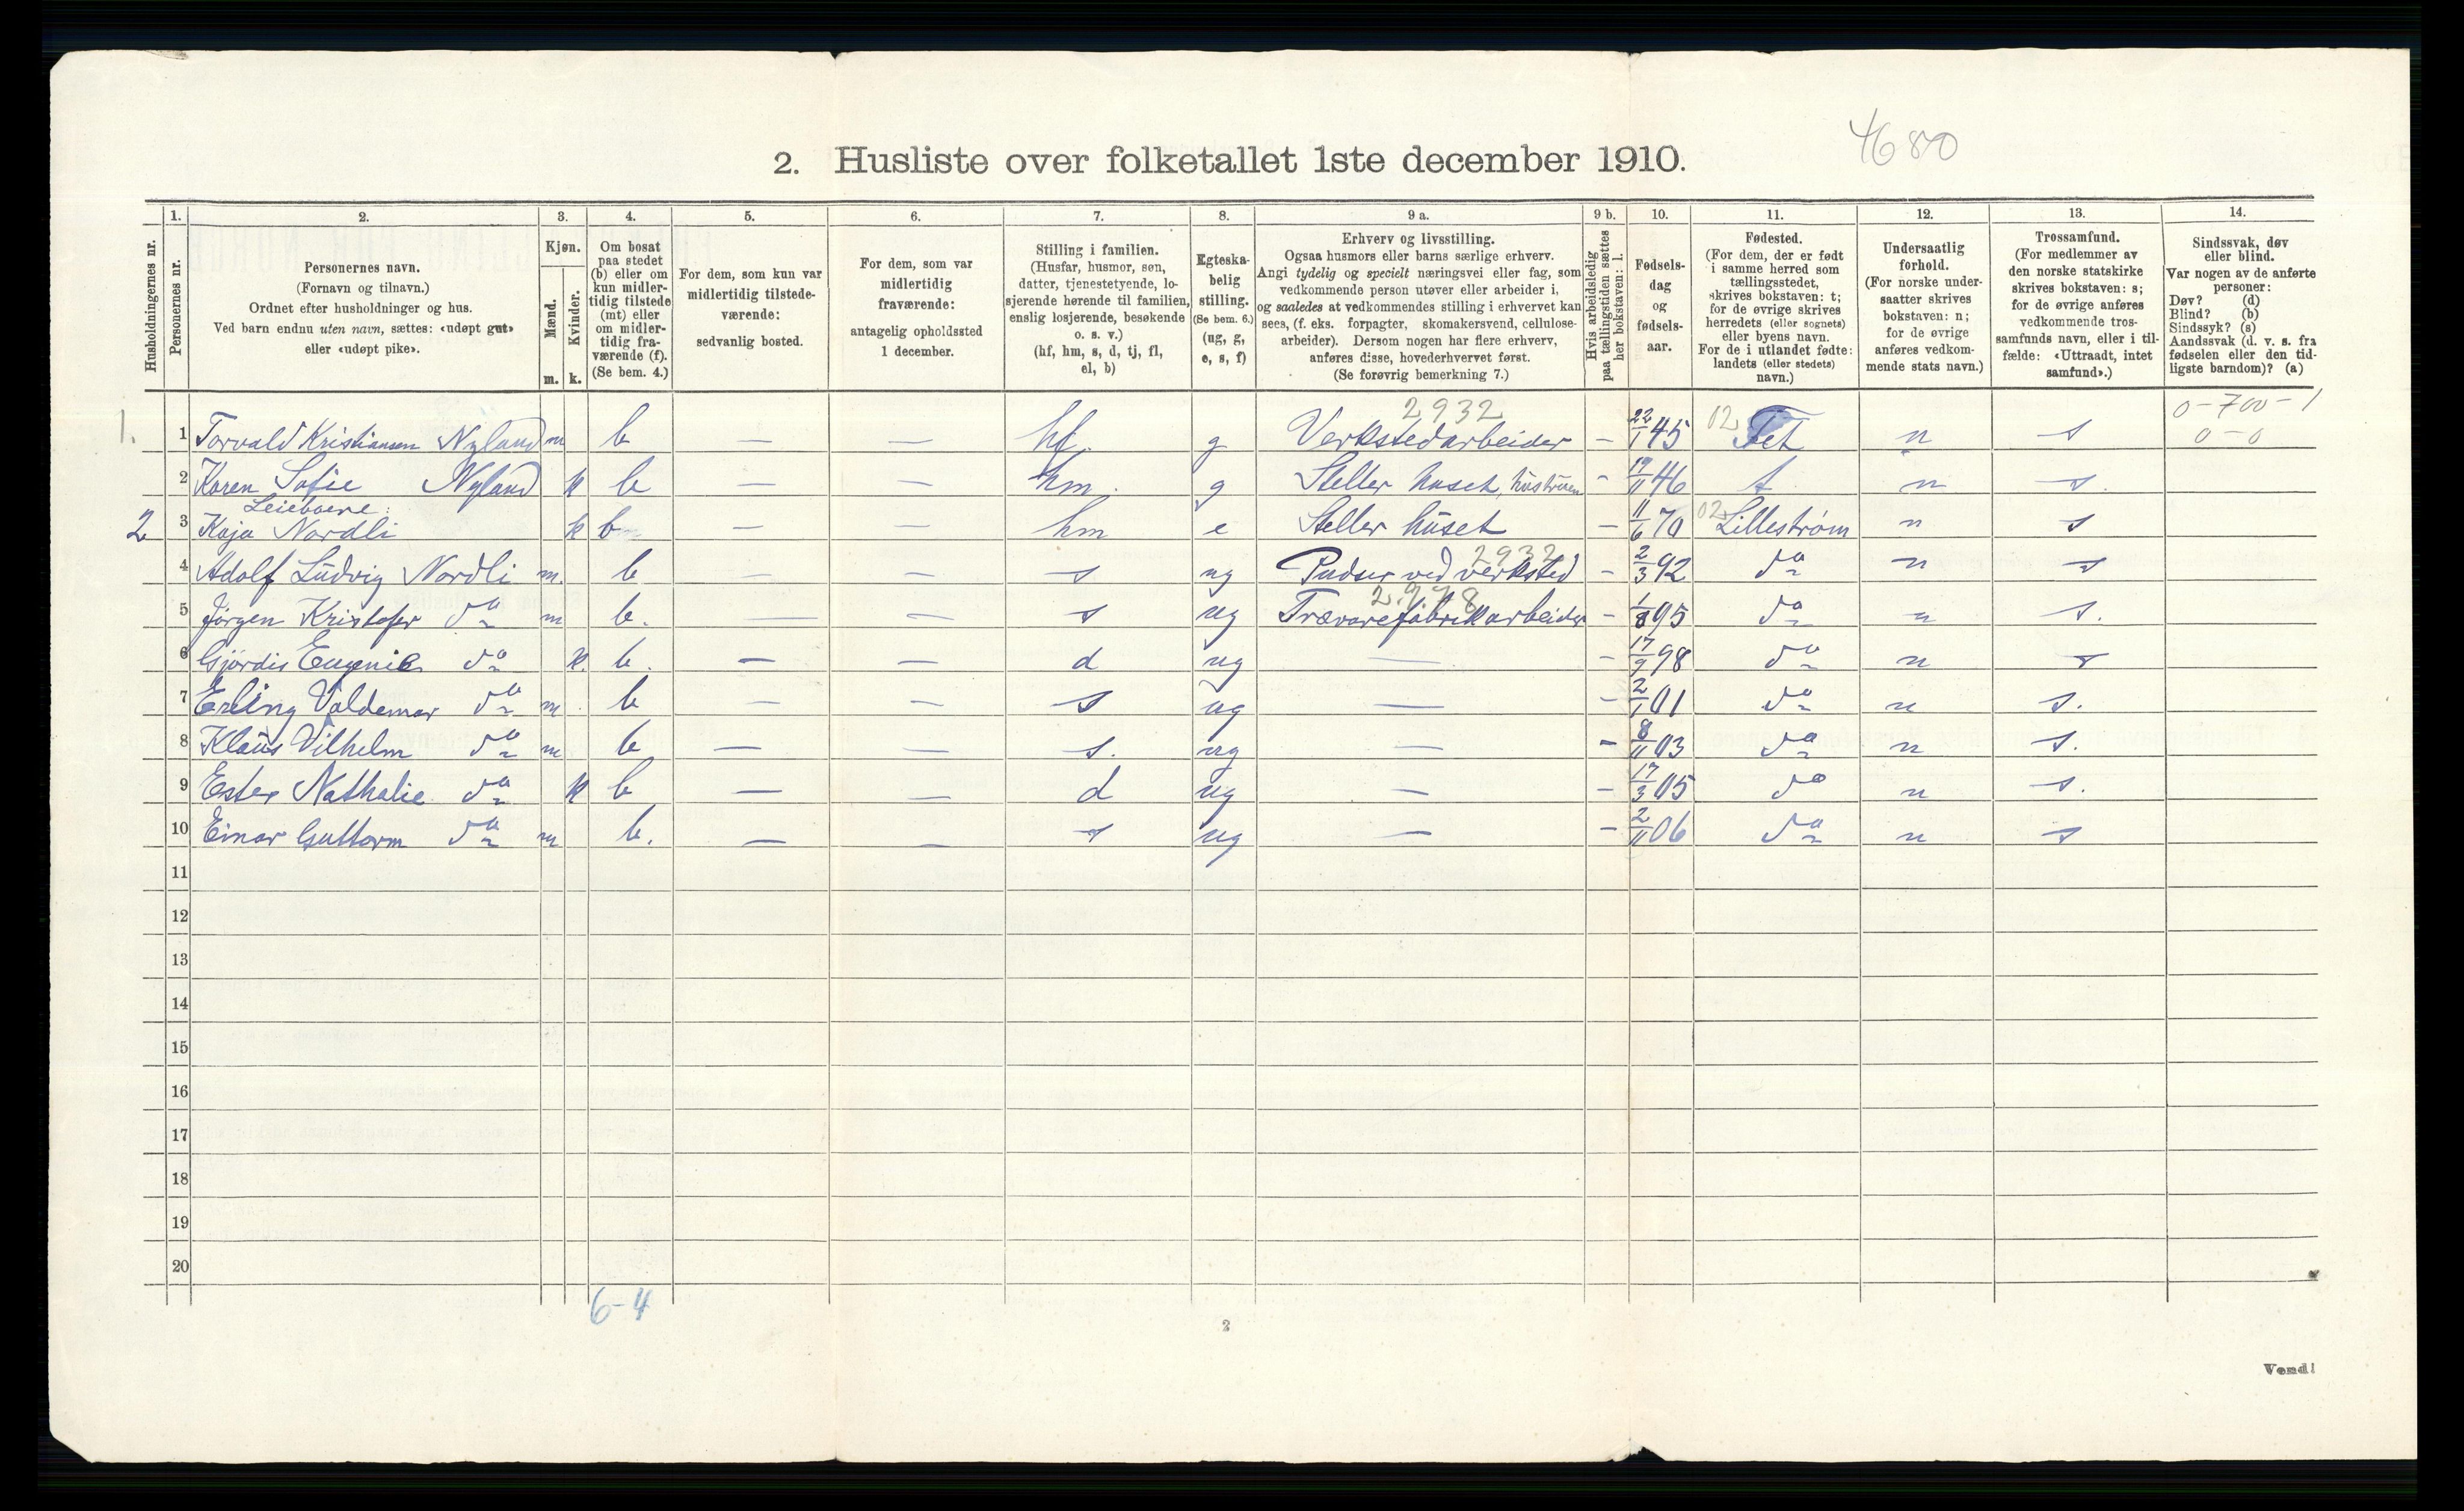 4680
2. Husliste over folketallet 1ste december 1910.
Husholdningernes nr.
1.
Personernes nr.
2.
Personernes navn.
(Fornavn og tilnavn.)
Ordnet efter husholdninger og hus.
Ved barn endnu uten navn, sættes: «udøpt gut»
eller «udøpt pike».
3.
Kjøn.
Mænd.
Kvinder.
m. k.
4.
Om bosat
paa stedet
(b) eller om
kun midler-
tidig tilstede
(mt) eller
om midler-
tidig fra-
værende (f).
(Se bem. 4.)
5.
For dem, som kun var
midlertidig tilstede-
værende:
sedvanlig bosted.
6.
For dem, som var
midlertidig
fraværende:
antagelig opholdssted
1 december.
7.
Stilling i familien.
(Husfar, husmor, søn,
datter, tjenestetyende, lo-
sjerende hørende til familien,
enslig losjerende, besøkende
o. s. v.)
(hf, hm, s, d, tj, fl,
el, b)
8.
Egteska-
belig
stilling.
(Se bem. 6.)
(ug, g,
e, s, f)
9 a.
Erhverv og livsstilling.
Ogsaa husmors eller barns særlige erhverv.
Angi tydelig og specielt næringsvei eller fag, som
vedkommende person utøver eller arbeider i,
og saaledes at vedkommendes stilling i erhvervet kan
sees, (f. eks. forpagter, skomakersvend, cellulose-
arbeider). Dersom nogen har flere erhverv,
anføres disse, hovederhvervet først.
(Se forøvrig bemerkning 7.)
9 b.
Hvis arbeidsledig
paa tællingstiden sættes
her bokstaven: l.
10.
Fødsels-
dag
og
fødsels-
aar.
11.
Fødested.
(For dem, der er født
i samme herred som
tællingsstedet,
skrives bokstaven: t;
for de øvrige skrives
herredets (eller sognets)
eller byens navn.
For de i utlandet fødte:
landets (eller stedets)
navn.)
12.
Undersaatlig
forhold.
(For norske under-
saatter skrives
bokstaven: n;
for de øvrige
anføres vedkom-
mende stats navn.)
13.
Trossamfund.
(For medlemmer av
den norske statskirke
skrives bokstaven: s;
for de øvrige anføres
vedkommende tros-
samfunds navn, eller i til-
fælde: «Uttraadt, intet
samfund».)
14.
Sindssvak, døv
eller blind.
Var nogen av de anførte
personer:
Døv? (d)
Blind? (b)
Sindssyk? (s)
Aandssvak (d. v. s. fra
fødselen eller den tid-
ligste barndom)? (a)
2932 0-700-1
1. 1 Torvald Kristiansen Nyland m b — — hf. g Verkstedarbeider – 22/1 45 02 Fet n s 0-0
2 Karen Sofie Nyland k b — — hm. g Steller huset, hustruen – 19/11 46 t n s.
Leieboere:
2 3 Kaja Nordli k b — — hm e Steller huset – 11/6 70 02 Lillestrøm n s
2932
4 Adolf Ludvig Nordli m. b — — s ug Pudser ved verksted – 2/3 92 do n s
2978
5 Jörgen Kristofer do m b. — — s ug Trævarefabrikarbeider – 1/8 95 do n s.
6 Gjördis Eugenie do k. b. — — d ug — – 17/9 98 do n s
7 Erling Valdemar do m. b — — s ug — – 2/1 01 do n s.
8 Klaus Vilhelm do m b — — s. ug — – 8/11 03 do n s.
9 Ester Nathalie do k b — — d ug — – 17/3 05 do n s.
10 Einar Guttorm do m b. — — s ug — – 2/11 06 do n s
11
12
13
14
15
16
17
18
19
20
6-4
2
Vend!